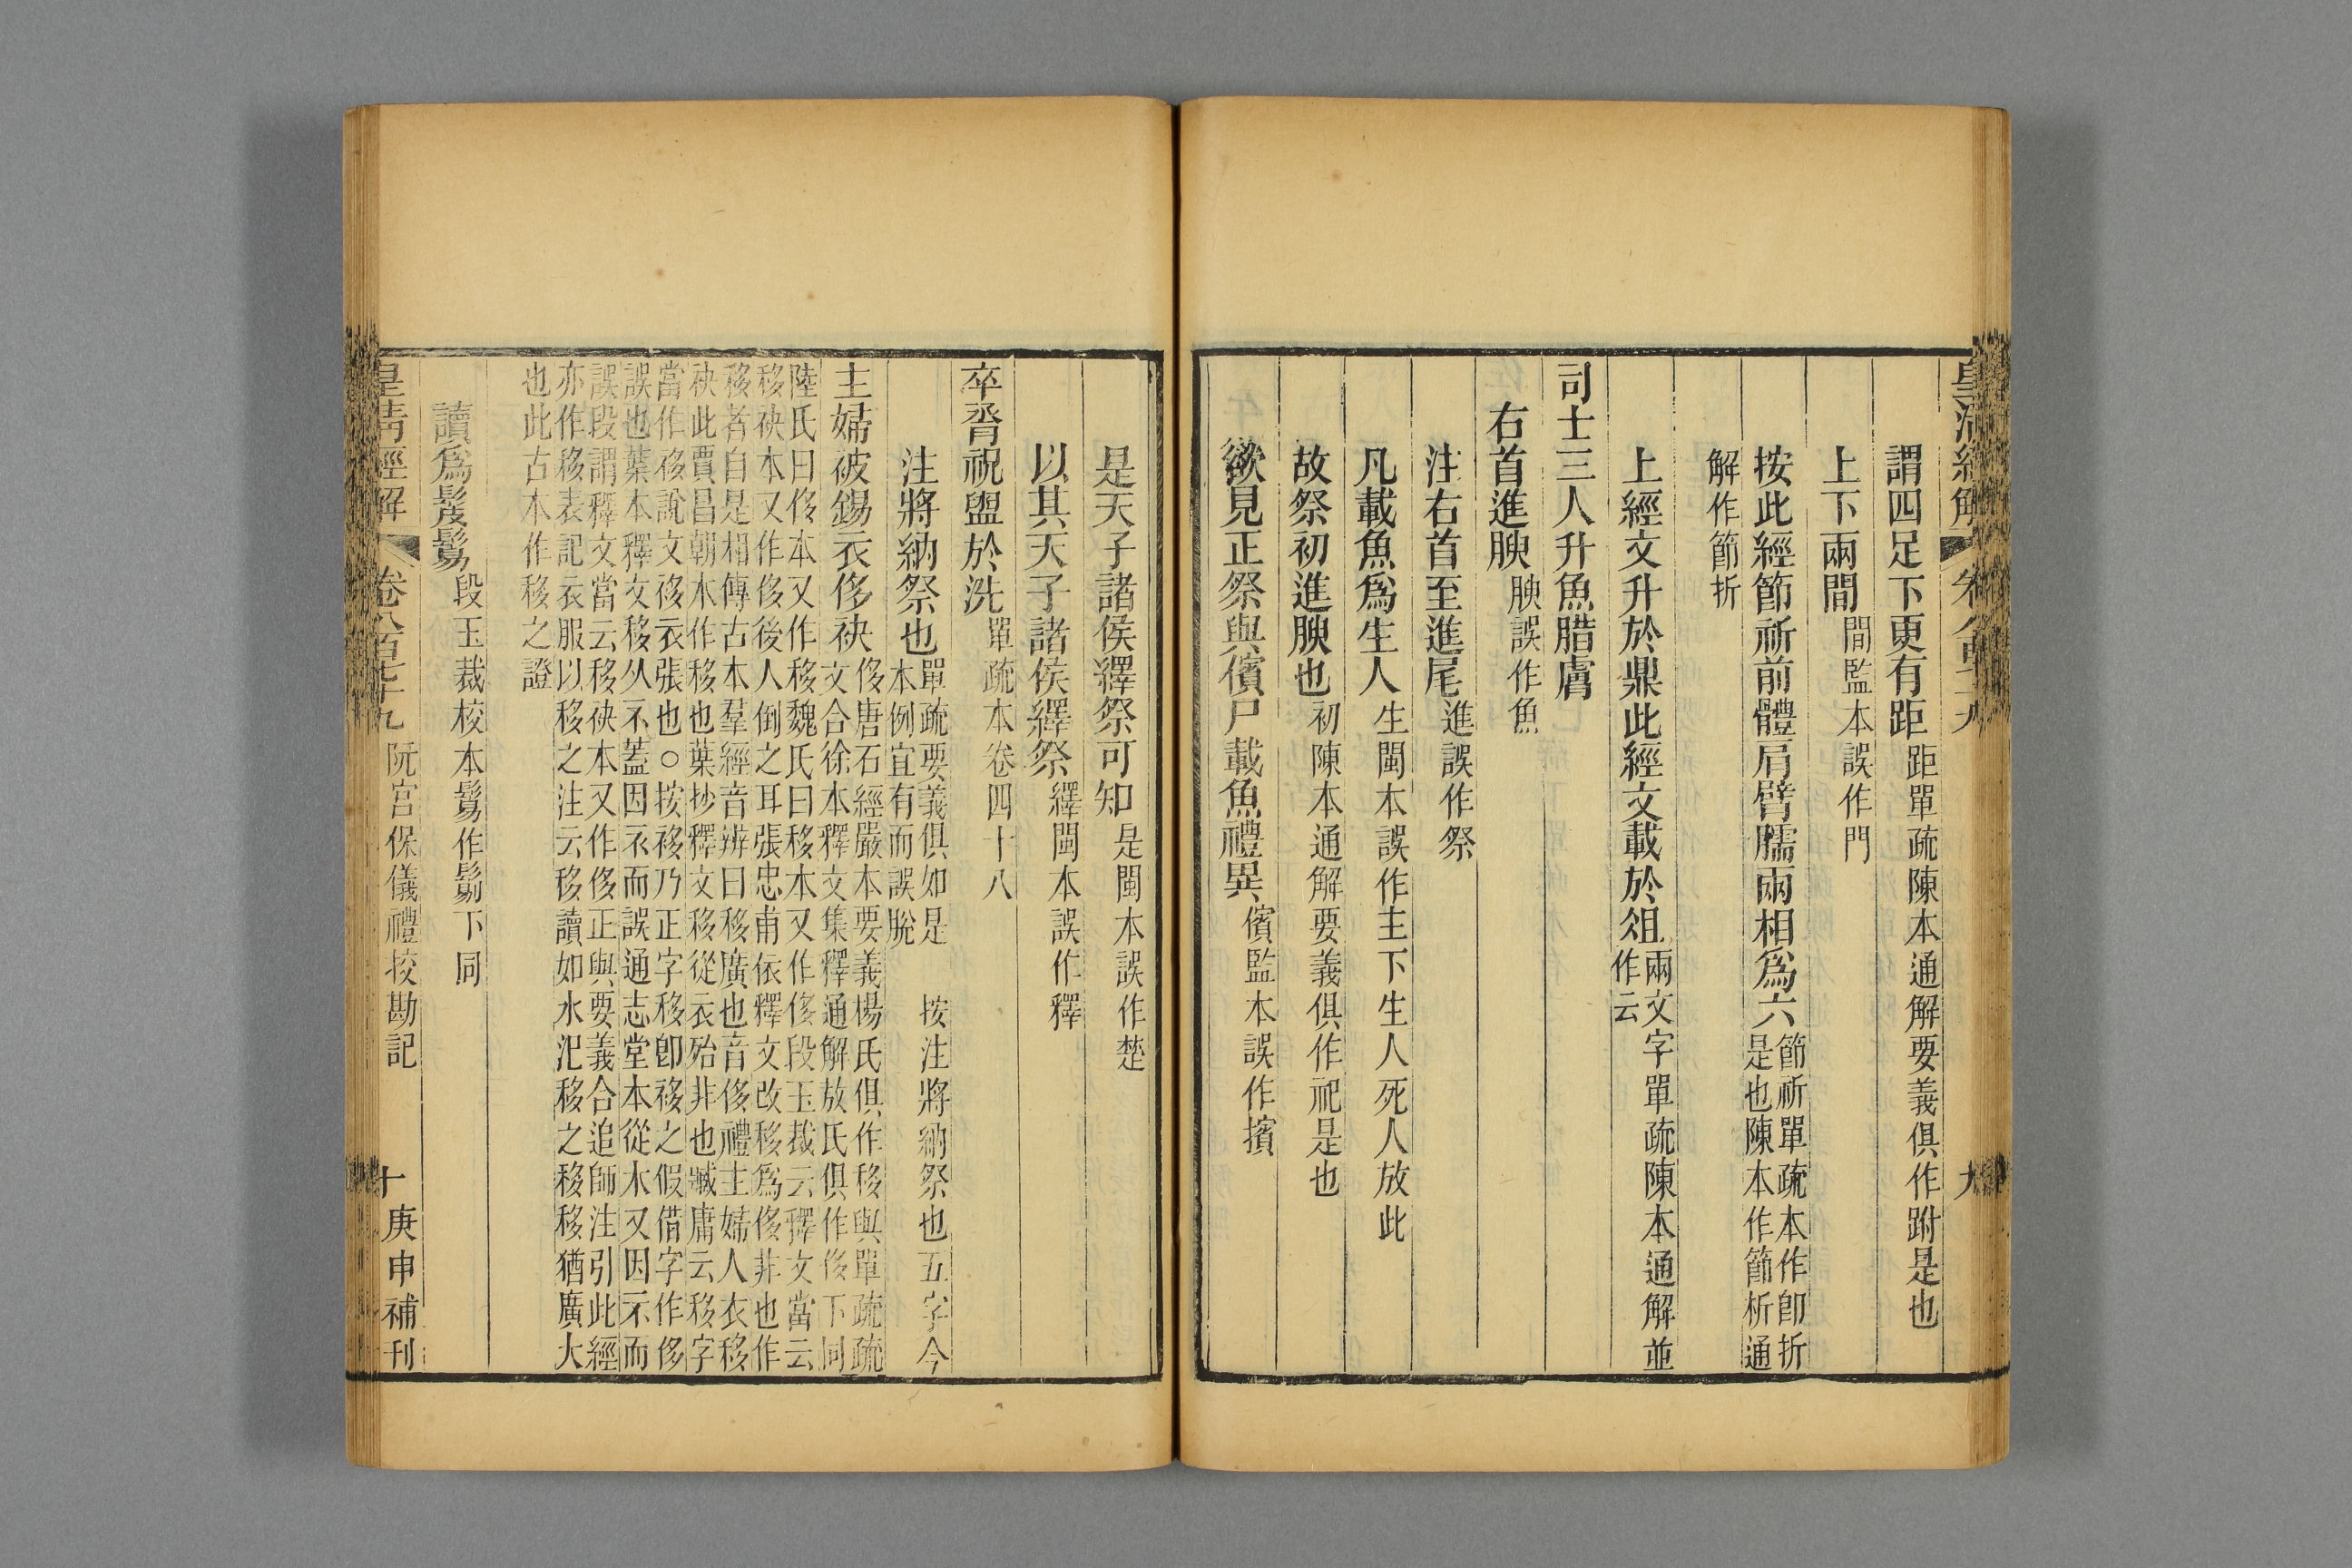 皇清經解 卷八百七十九 九
謂四足下更有距距單疏陳本通解要義俱作跗是也
上下兩間間監本誤作門
按此經節祈前體肩臂臑兩相爲六節祈單疏本作卽折是也陳本作節析通
解作節折
上經文升於鼎此經文載於俎兩文字單疏陳本通解並作云
司士三人升魚腊膚
右首進腴腴誤作魚
注右首至進尾進誤作祭
凡載魚爲生人生閩本誤作主下生人死人放此
故祭初進腴也初陳本通解要義俱作祀是也
欲見正祭與儐尸載魚禮異儐監本誤作擯
是天子諸侯繹祭可知是閩本誤作楚
以其天子諸侯繹祭繹閩本誤作釋
卒脀祝盥於洗單疏本卷四十八
注將納祭也單疏要義俱如是 按注將納祭也五字今本例宜有而誤脫
主婦被錫衣侈袂侈唐石經嚴本要義楊氏俱作移與單疏疏文合徐本釋文集釋通解敖氏俱作侈下同
陸氏曰侈本又作移魏氏曰移本又作侈段玉裁云釋文當云
移袂本又作侈後人倒之耳張忠甫依釋文改移爲侈非也作
移者自是相傳古本羣經音辨曰移廣也音侈禮主婦人衣移
袂此賈昌朝本作移也葉抄釋文移從衣殆非也臧庸云移字
當作袳說文袳衣張也○按袳乃正字移卽袳之假借字作侈
誤也葉本釋文移从衣蓋因衣而誤通志堂本從木又因衣而
誤段謂釋文當云移袂本又作侈正與要義合追師注引此經
亦作移表記衣服以移之注云移讀如水汜移之移移猶廣大
也此古本作移之證
讀爲髲鬄段玉裁校本鬄作鬀下同
皇清經解 卷八百七十九 阮宮保儀禮挍勘記 十 庚申補刊